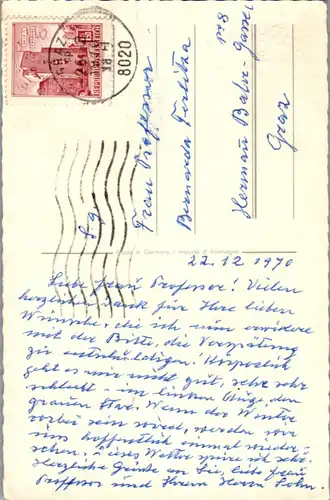 GRAZ
8020
REPUBLIK ÖSTERREICH
S.g.
Frau Professor
Bernarda
Hermann Bahr-Gasse
Graz
22.12.1970
Liebe Frau Professor! Vielen
herzlichen Dank für Ihre lieben
Wünsche, die ich nun erwidere
mit der Bitte, die Verspätung
zu entschuldigen. Körperlich
geht es mir nicht gut, sehe sehr
schlecht - im linken Auge den
grauen Star. Wenn der Winter
vorbei sein wird, werden wir
uns hoffentlich einmal wieder-
sehen. Wetter spüre ich sehr.
Herzliche Grüße an Sie, liebe Frau
Professor und Ihren Herrn Sohn.